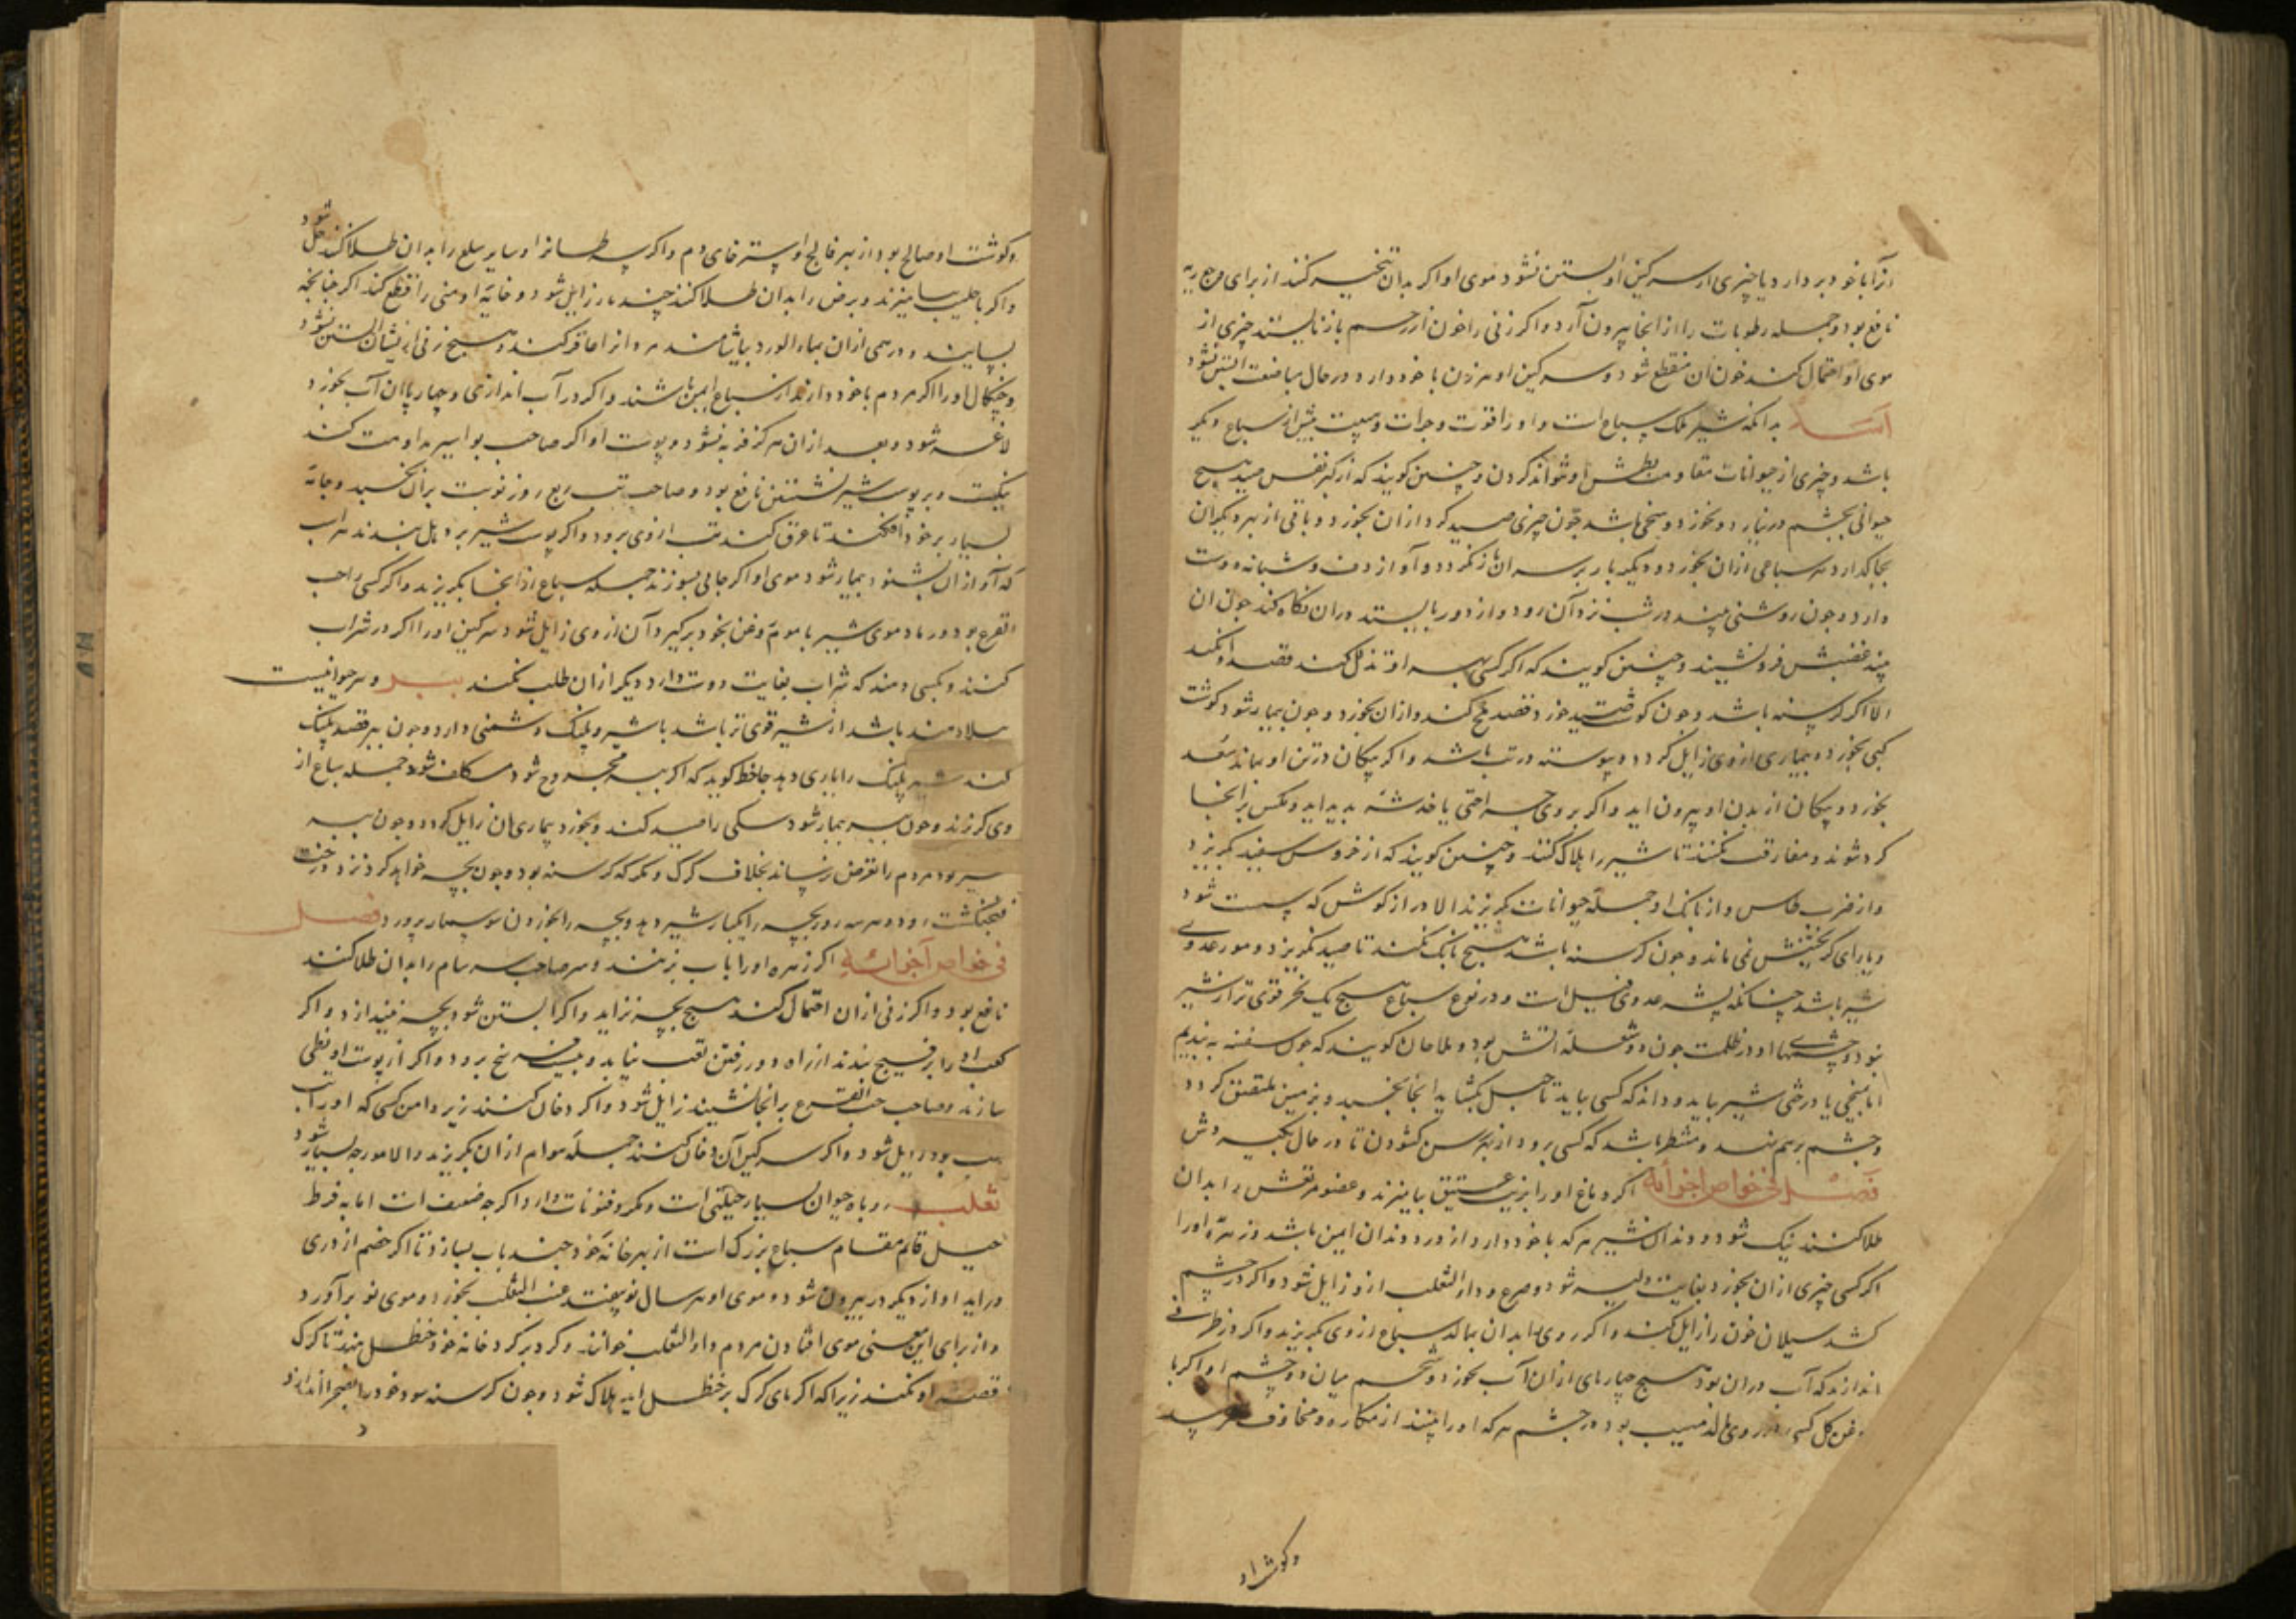 آنرا با خود بردارد یا چیزی از سرکین او آبستن نشود موی او اکر بدان تبخیر کنند از برای
نافع بود و جمله رطوبات را از انجا بیرون آرد و اکر زنی را خون از رحم باز نایستد چیزی از
موی او احتمال کند خون ان منقطع شود و سرکین او هر زن با خود دارد در حال مباضعت آبستن نشود
اسد بدانکه شیر ملک سباع است و او را قوت و جرات و هیبت بیش از سباع دیکر
باشد و چیزی از حیوانات مقاومت بطش او نتواند کردن و چنین کویند که از کبر نفس صید هیچ
حیوانی بچشم در نیارد و نخورد و سخی باشد چون چیزی صید کرد ازان بخورد و باقی از بهر دیکران
بجا کذارد هر سباعی ازان بخورد و دیکر بار بر سر ان باز نکردد و آواز دف و شبانه دوست
دارد و چون روشنی بیند در شب نزد آن رود و از دور بایستد دران نکاه کند چون ان
بیند غضبش فرو نشیند و چنین کویند که اکر کسی او تذلل کند قصد او نکند
الا اکر کرسنه باشد و چون کوشت صید خورد قصد کند و ازان بخورد و چون بیمار شود کوشت
کپی بخورد و بیماری از وی زایل کردد و پیوسته در تب باشد و اکر پیکان در تن او بماند سعد
بخورد و پیکان از بدن او بیرون اید و اکر بر وی جراحتی یا خدشه پدید اید و مکس بر انجا
کرد شوند و مفارقت نکنند تا شیر را هلاک کنند و چنین کویند که از خروس سفید بکریزد
و از ضرب طاس و از بانک او جمله حیوانات بکریزند الا دراز کوش که سست شود
و یارای کریختنش نمی ماند و چون کرسنه باشد هیچ بانک نکند تا صید نکریزد و مور عدوی
شیر باشد چنانکه پشه عدوی فیل است و در نوع سباع هیچ یک قوی تر از شیر
نبود و چشمهای او در ظلمت چون دو شعله اتش بود و ملاحان کویند که چون سفینه به بندیم
اما بمیخی یا درختی شیر بیاید و داند که کسی بیاید تا حبل بکشاید انجا بخسبد و بر زمین ملتصق کردد
و چشم بر هم نهد و منتظر باشد که کسی برود از بهر رسن کشودن تا در حال بکیردش
فصل فی خواص اجزائه اکر دماغ او را بزیت عتیق بیامیزند و عضو مرتعش را بدان
طلا کنند نیک شود و دندان شیر هر که با خود دارد از درد دندان ایمن باشد و زهره او را
اکر کسی چیزی ازان بخورد بغایت دلیر شود و صرع و داء الثعلب ازو زایل شود و اکر در چشم
کشد سیلان خون را زایل کند و اکر روی را بدان بمالد سباع از وی بکریزند و اکر در ظرفی
اندازند که آب دران بود هیچ چارپای ازان آب نخورد و شحم میان دو چشم او اکر با
دهن کل کسی در روی مالد مهیب بود در چشم هر که او را بیند از مکاره و مخاوف
وکوشت او
وکوشت او صالح بود از بهر فالج و استرخای دم و اکر سرطانرا و سایر سلع را بدان طلا کنند حل شود
و اکر با حلیب بیامیزند و برص را بدان طلا کنند چند بار زایل شود و خایه او منی را قطع کند اکر چنانچه
بسایند و درهمی ازان بماء الورد بیاشامند مرد و زنرا عاقر کند و هیچ زنی ازیشان آبستن نشود
و چنکال او را اکر مردم با خود دارند از سباع ایمن باشند و اکر در آب اندازی و چهارپایان آب بخورد
لاغر شود و بعد ازان هرکز فربه نشود و پوست او اکر صاحب بواسیر مداومت کند
نیکست و بر پوست شیر نشستن نافع بود و صاحب تب ربع روز نوبت بران بخسبد و جامه
بسیار بر خود افکند تا عرق کند تب از وی برود و اکر پوست شیر بر دهل بندند هر اسب
که آواز ان بشنود بیمار شود موی او اکر جائی بسوزند جمله سباع از انجا بکریزند و اکر کسی را حب
القرع بود و رماد موی شیر با موم و بخود برکیرد آن از وی زایل شود سرکین او را اکر در شراب
کنند و بکسی دهند که شراب بغایت دوست دارد دیکر ازان طلب نکند ببر و هر حیوانیست
باشد از شیر قوی تر باشد با شیر و پلنک دشمنی دارد و چون ببر قصد پلنک
کند شیر پلنک را یاری دهد جاحظ کوید که اکر ببر مجروح شود مکلف شود جمله سباع از
وی کریزند و چون ببر بیمار شود سکی را صید کند و بخورد بیماری ان زایل کردد و چون ببر
سیر بود مردم را تعرض نرساند بخلاف کرک و مکر که کرسنه بود و چون بچه خواهد کرد نزد درخت
فنجنکشت رود و هر سه روز بچه را یکبار شیر دهد و بچه را بخوردن سوسمار پرورد فصل
فی خواص اجزائه اکر زهره او را باب بزنند و صاحب سرسام را بدان طلا کنند
نافع بود و اکر زنی ازان احتمال کند هیچ بچه نزاید و اکر ابستن شود بچه بیندازد و اکر
کعب او را بر بندند از راه دور رفتن تعب نیابد و بیست فرسخ برود و اکر از پوست او نطعی
سازند و صاحب حب القرع برانجا نشیند زایل شود و اکر دخان کنند زیر دامن کسی که او را تب
تب بود زایل شود و اکر سرکین آن دخان کنند جمله هوام ازان بکریزند الا مورچه بسیار شود
ثعلب روباه حیوان بسیار حیلتی است و مکر و فنونات دارد اکر چه ضعیف است اما به فرط
حیل قائم مقام سباع بزرک است از بهر خانه خود چند باب بسازد تا اکر خصم از دری
دراید او از دیکر در بیرون شود و موی او هر سال نو بیفتد عنب الثعلب بخورد و موی نو برآورد
و از برای این معنی موی افتادن مردم داء الثعلب خوانند و کرد برکرد خانه خود حنظل بنهد تا کرک
قصد او نکند زیرا که اکر پای کرک بر حنظل اید هلاک شود و چون کرسنه بود خود را بصحرا اندازد